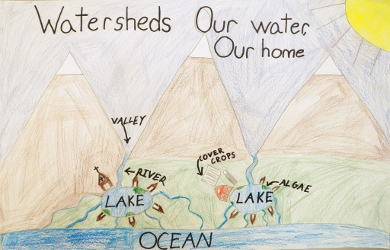 Watersheds Our water,
Our home
VALLEY
COVER
CROPS
RIVER
ALGAE
LAKE
LAKE
OCEAN